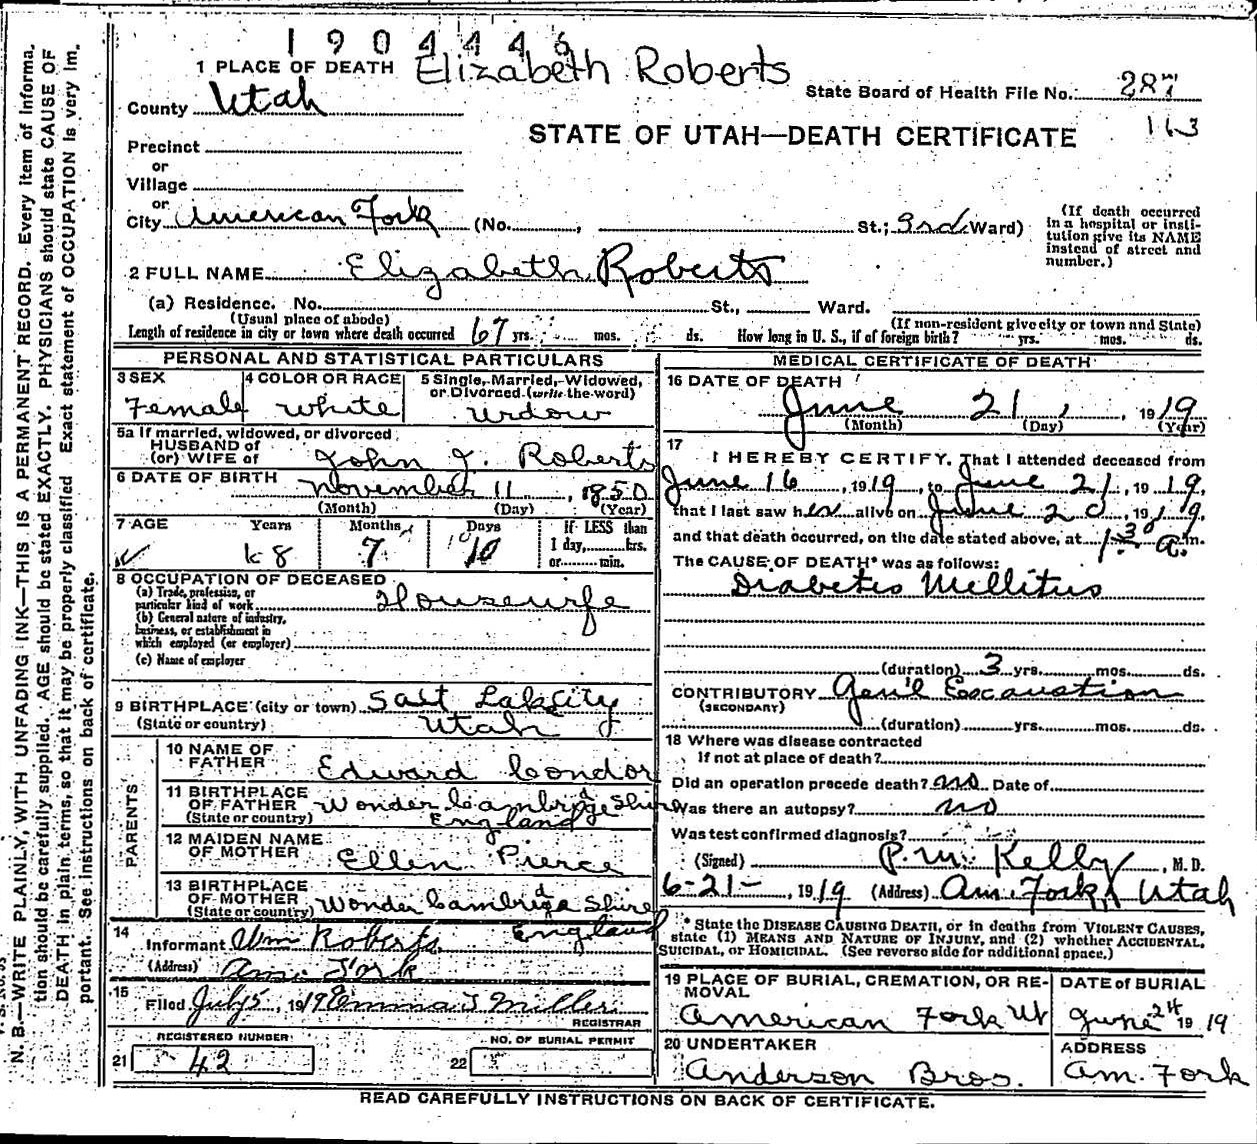 1904446
1 PLACE OF DEATH Elizabeth Roberts
State Board of Health File No. 287
County Utah
163
STATE OF UTAH—DEATH CERTIFICATE
Precinct
or
Village
or
City American Fork (No. , St.; 3rd Ward)
(If death occurred in a hospital or insti-
tution give its NAME instead of street and number.)
2 FULL NAME Elizabeth Roberts
(a) Residence. No. St., Ward.
(Usual place of abode) (If non-resident give city or town and State)
Length of residence in city or town where death occurred 67 yrs. mos. ds. How long in U. S., if of foreign birth? yrs. mos. ds.
PERSONAL AND STATISTICAL PARTICULARS
3 SEX
Female
4 COLOR OR RACE
White
5 Single, Married, Widowed,
or Divorced (write the word)
Widow
5a If married, widowed, or divorced
HUSBAND of
(or) WIFE of John J. Roberts
6 DATE OF BIRTH November 11, 1850
(Month) (Day) (Year)
7 AGE Years Months Days If LESS than
68 7 10 1 day, hrs.
or min.
8 OCCUPATION OF DECEASED
(a) Trade, profession, or
particular kind of work Housewife
(b) General nature of industry,
business, or establishment in
which employed (or employer)
(c) Name of employer
9 BIRTHPLACE (city or town) Salt Lak City
(State or country) Utah
PARENTS
10 NAME OF
FATHER Edward Condor
11 BIRTHPLACE
OF FATHER Wonder Cambridge Shire
(State or country) England
12 MAIDEN NAME
OF MOTHER Ellen Pierce
13 BIRTHPLACE
OF MOTHER Wonder Cambridge Shire
(State or country) England
14
Informant Wm Roberts
(Address) Am. Fork
15
Filed July 5, 1919 Emma J Miller
REGISTRAR
REGISTERED NUMBER NO. OF BURIAL PERMIT
21 42 22
MEDICAL CERTIFICATE OF DEATH
16 DATE OF DEATH
June 21, 1919
(Month) (Day) (Year)
17
I HEREBY CERTIFY, That I attended deceased from
June 16, 1919, to June 21, 1919,
that I last saw her alive on June 20, 1919,
and that death occurred, on the date stated above, at 1:30 a.m.
The CAUSE OF DEATH* was as follows:
Diabetes Mellitus
(duration) 3 yrs. mos. ds.
CONTRIBUTORY Gen'l Excaustion
(SECONDARY)
(duration) yrs. mos. ds.
18 Where was disease contracted
If not at place of death?
Did an operation precede death? no Date of
Was there an autopsy? no
Was test confirmed diagnosis?
(Signed) P. M. Kelly, M. D.
6-21-, 1919 (Address) Am. Fork, Utah
* State the DISEASE CAUSING DEATH, or in deaths from VIOLENT CAUSES,
state (1) MEANS AND NATURE OF INJURY, and (2) whether ACCIDENTAL,
SUICIDAL, or HOMICIDAL. (See reverse side for additional space.)
19 PLACE OF BURIAL, CREMATION, OR RE-
MOVAL
American Fork Ut
DATE of BURIAL
June 24 1919
20 UNDERTAKER
Anderson Bros.
ADDRESS
Am. Fork
READ CAREFULLY INSTRUCTIONS ON BACK OF CERTIFICATE.
N. B.—WRITE PLAINLY, WITH UNFADING INK—THIS IS A PERMANENT RECORD. Every item of Informa-
tion should be carefully supplied. AGE should be stated EXACTLY. PHYSICIANS should state CAUSE OF
DEATH in plain terms, so that it may be properly classified Exact statement of OCCUPATION is very im-
portant. See instructions on back of certificate.